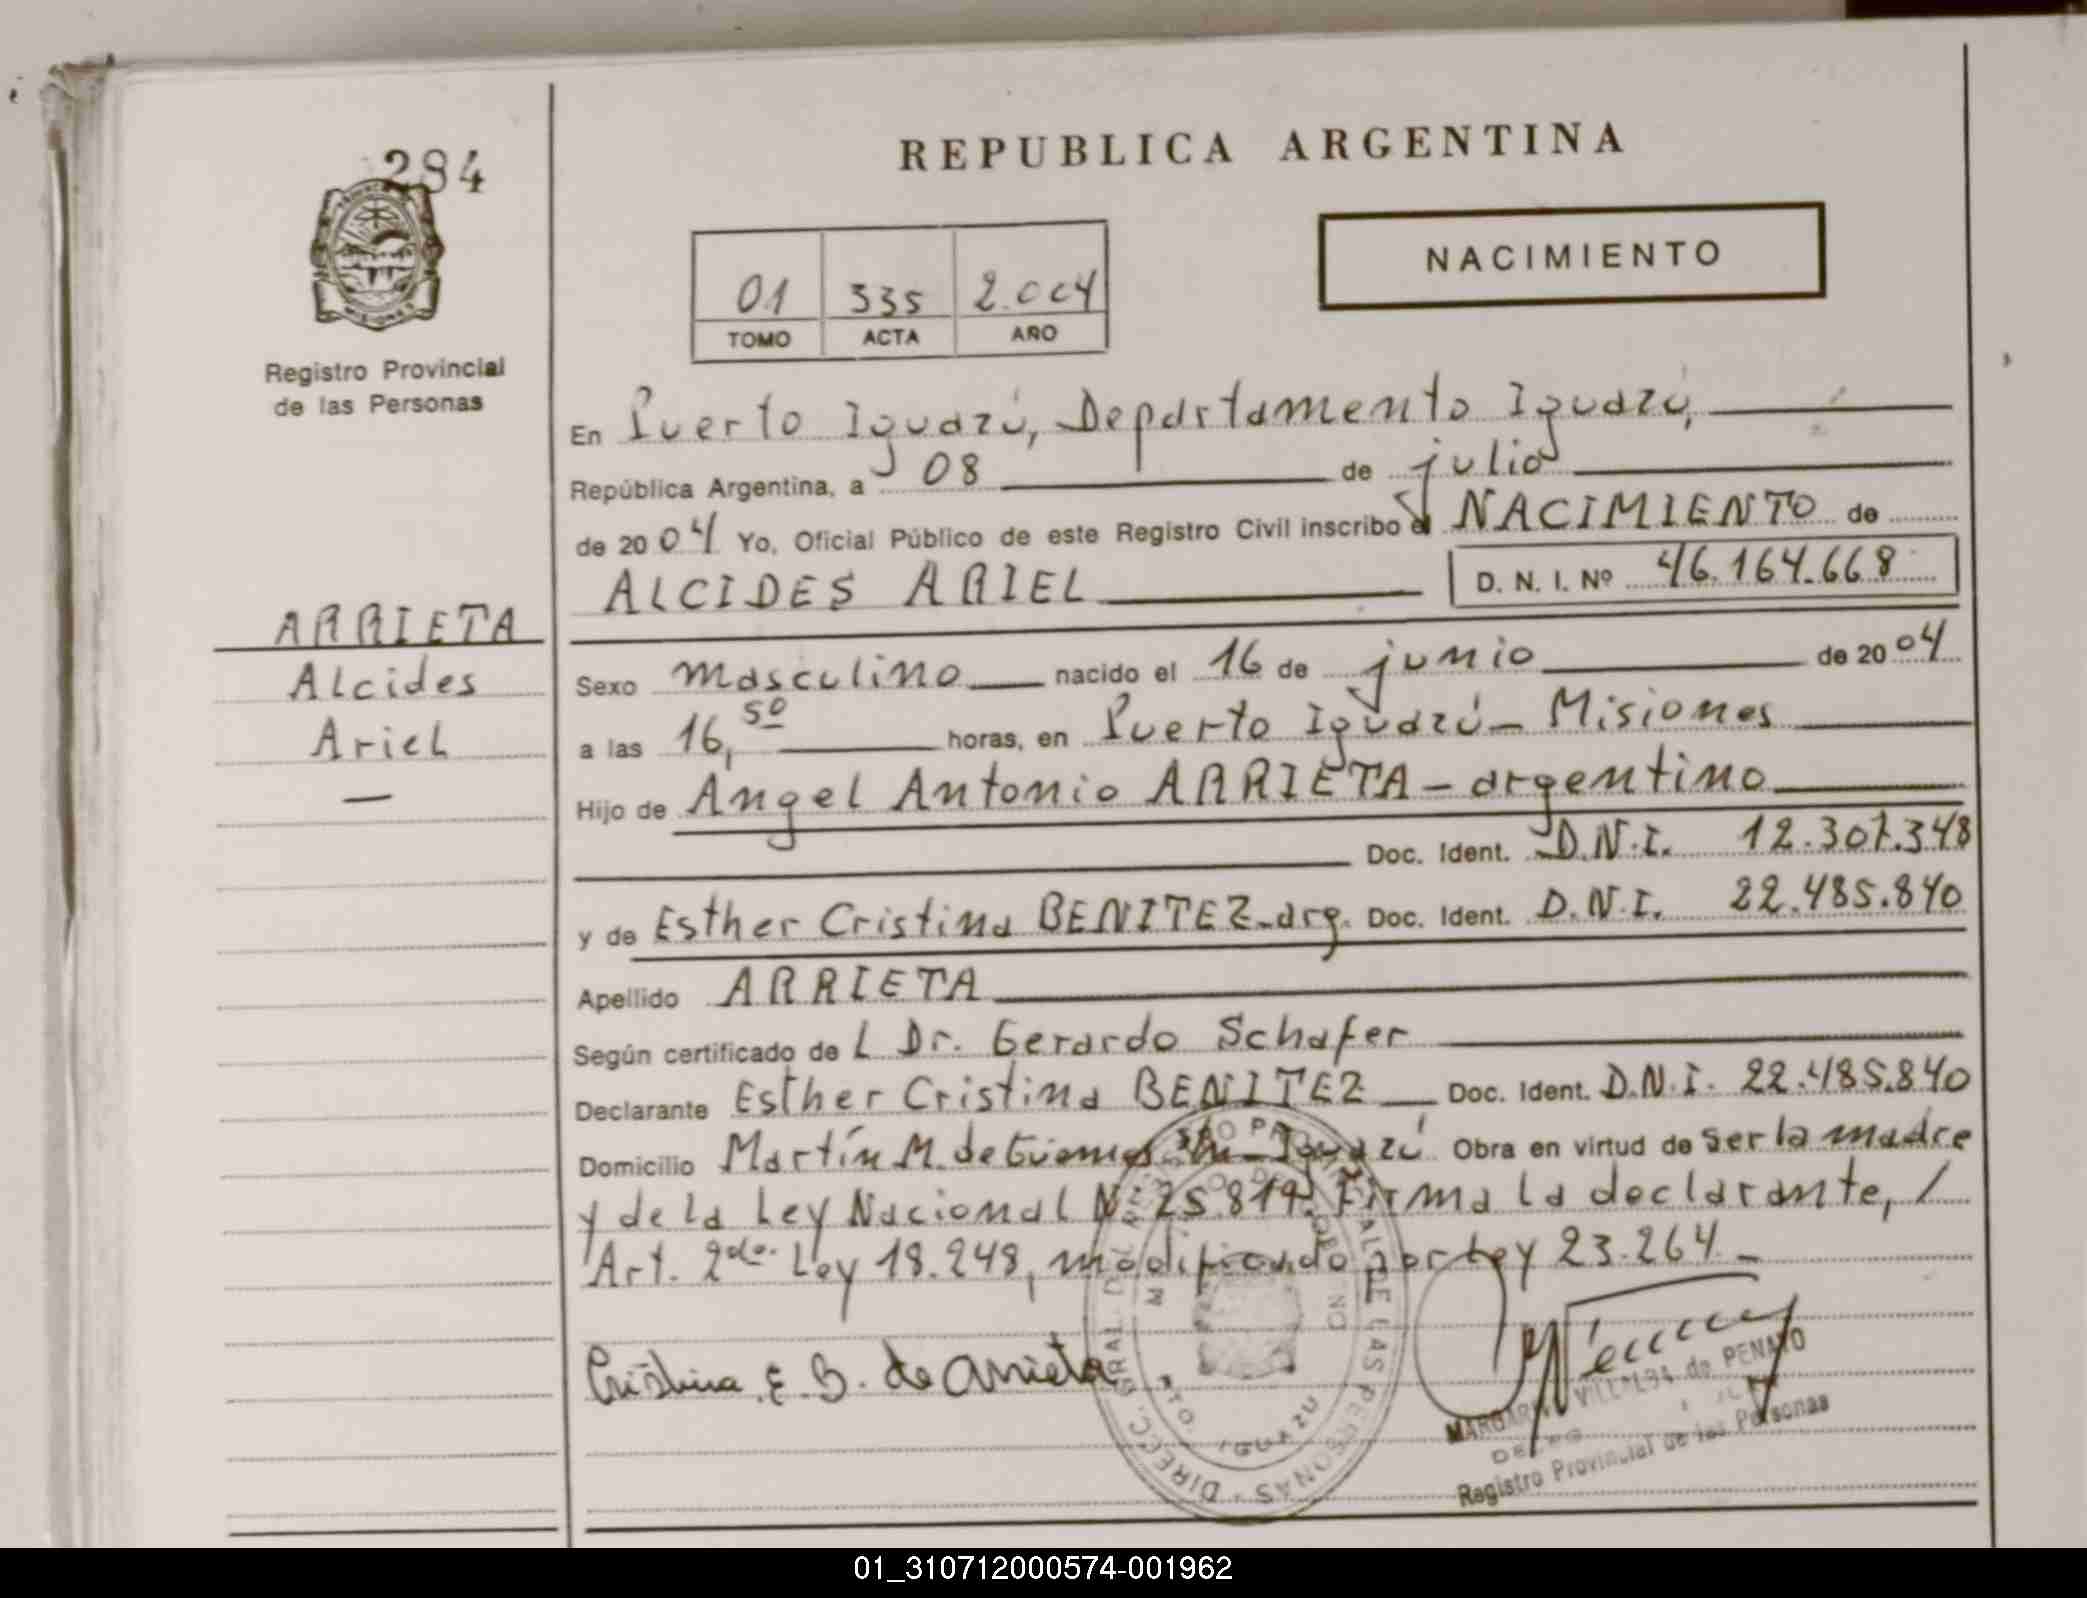 284
REPUBLICA ARGENTINA
NACIMIENTO
01 335 2.004
TOMO ACTA AÑO
Registro Provincial
de las Personas
En Puerto Iguazú, Departamento Iguazú,
República Argentina, a 08 de julio
de 2004 Yo, Oficial Público de este Registro Civil inscribo el NACIMIENTO de
ALCIDES ARIEL D. N. I. Nº 46.164.668
ARRIETA
Alcides
Ariel
—
Sexo masculino nacido el 16 de junio de 2004
a las 16,50 horas, en Puerto Iguazú - Misiones
Hijo de Angel Antonio ARRIETA - argentino
Doc. Ident. D.N.I. 12.307.348
y de Esther Cristina BENITEZ - arg. Doc. Ident. D.N.I. 22.485.840
Apellido ARRIETA
Según certificado de L Dr. Gerardo Schafer
Declarante Esther Cristina BENITEZ Doc. Ident. D.N.I. 22.485.840
Domicilio Martín M. de Güemes Iguazú Obra en virtud de ser la madre
y de la Ley Nacional Nº 25.819. Firma la declarante, /
Art. 2do. Ley 18.248, modificado por Ley 23.264 -
Cristina E. B. de Arrieta
DIRECC. GRAL. DEL REGISTRO PROVINCIAL DE LAS PERSONAS
DTO. IGUAZU
VILLALBA de PENAYO
Registro Provincial de las Personas
01_310712000574-001962